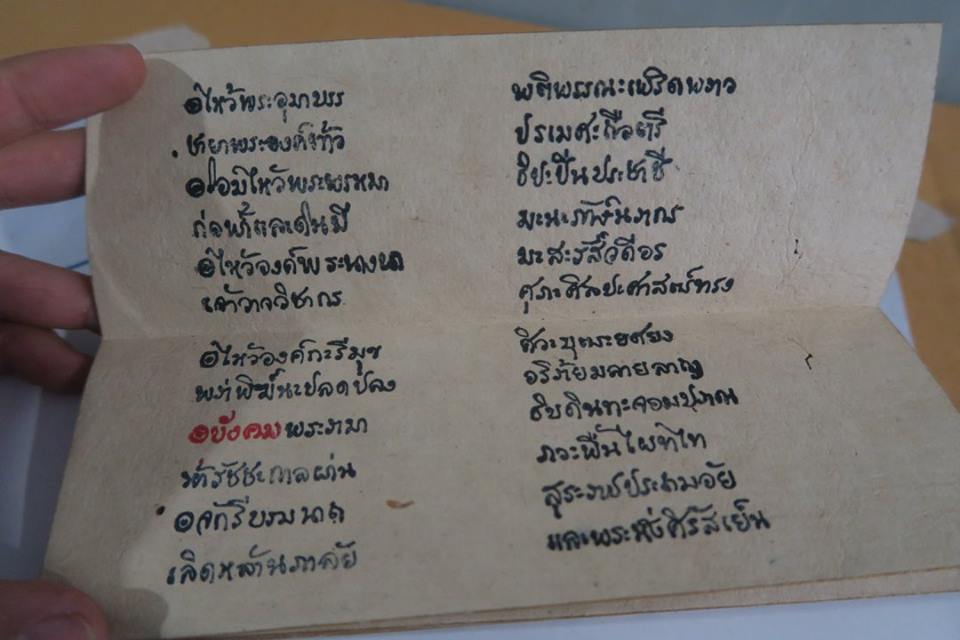 ๏ไหว้พระอุมาบรร พติพรรณะเพริดพภาว
ชายาพระองค์ท้าว ปรเมศะถือตรี
๏ไอมไหว้พระพรหมา ธิปะปิ่นประชาชี
ก่อฟ้าและดินมี มะนะภาษนภากร
๏ไหว้องค์พระนางนา มะสะรัสวดีอร
เจ้าวาจวิชากร ศุภะศิลปะศาสตร์ทรง
๏ไหว้องค์กะรีมุข ศิวะบุตระยศยง
พร่าพิฆ์นะปลดปลง อริภัยมลายลาญ
๏บังคมพระรามา ธิบดินทะจอมปราณ
รัชชะกาลผ่าน ภวะพื้นไผทไท
๏จักรีบรมนาถ สุระราชประถมอัย
เลิดหล้านภาลัย และพระนั่งศิรัสเย็น